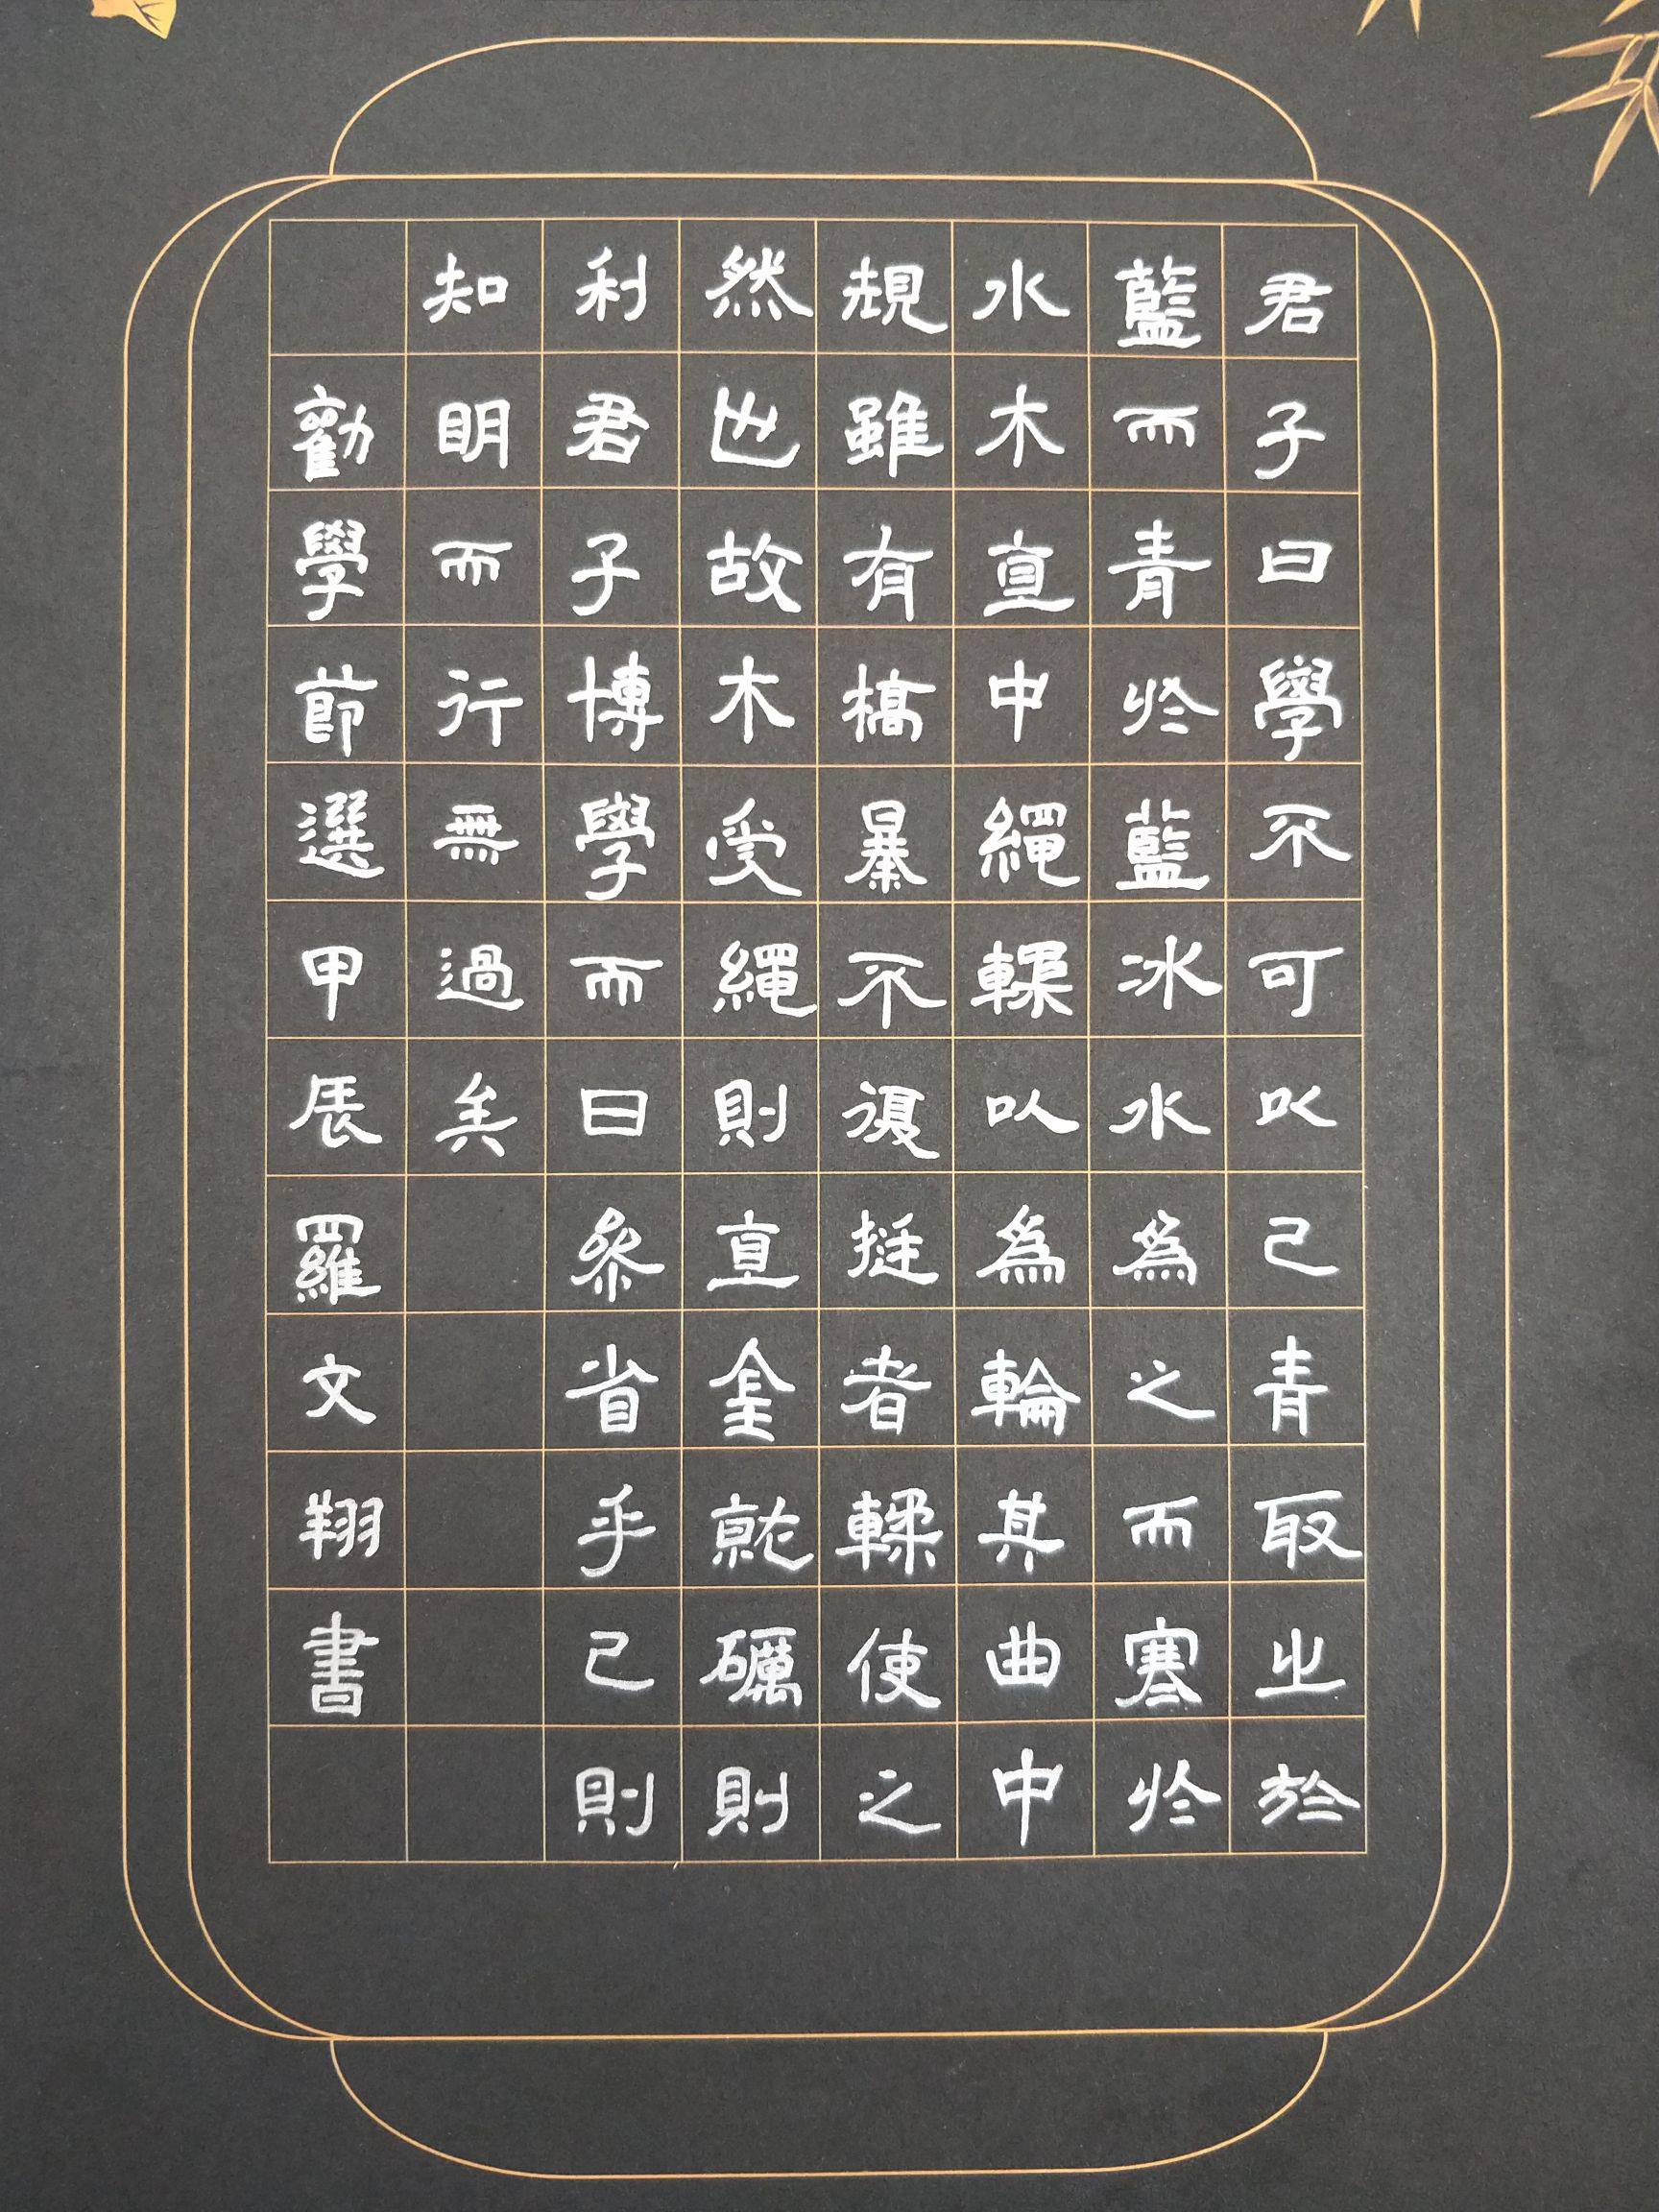 君子曰學不可以已青取之於
藍而青於藍冰水為之而寒於
水木直中繩輮以為輪其曲中
規雖有槁暴不復挺者輮使之
然也故木受繩則直金就礪則
利君子博學而日參省乎己則
知明而行無過矣
勸學節選甲辰羅文翔書